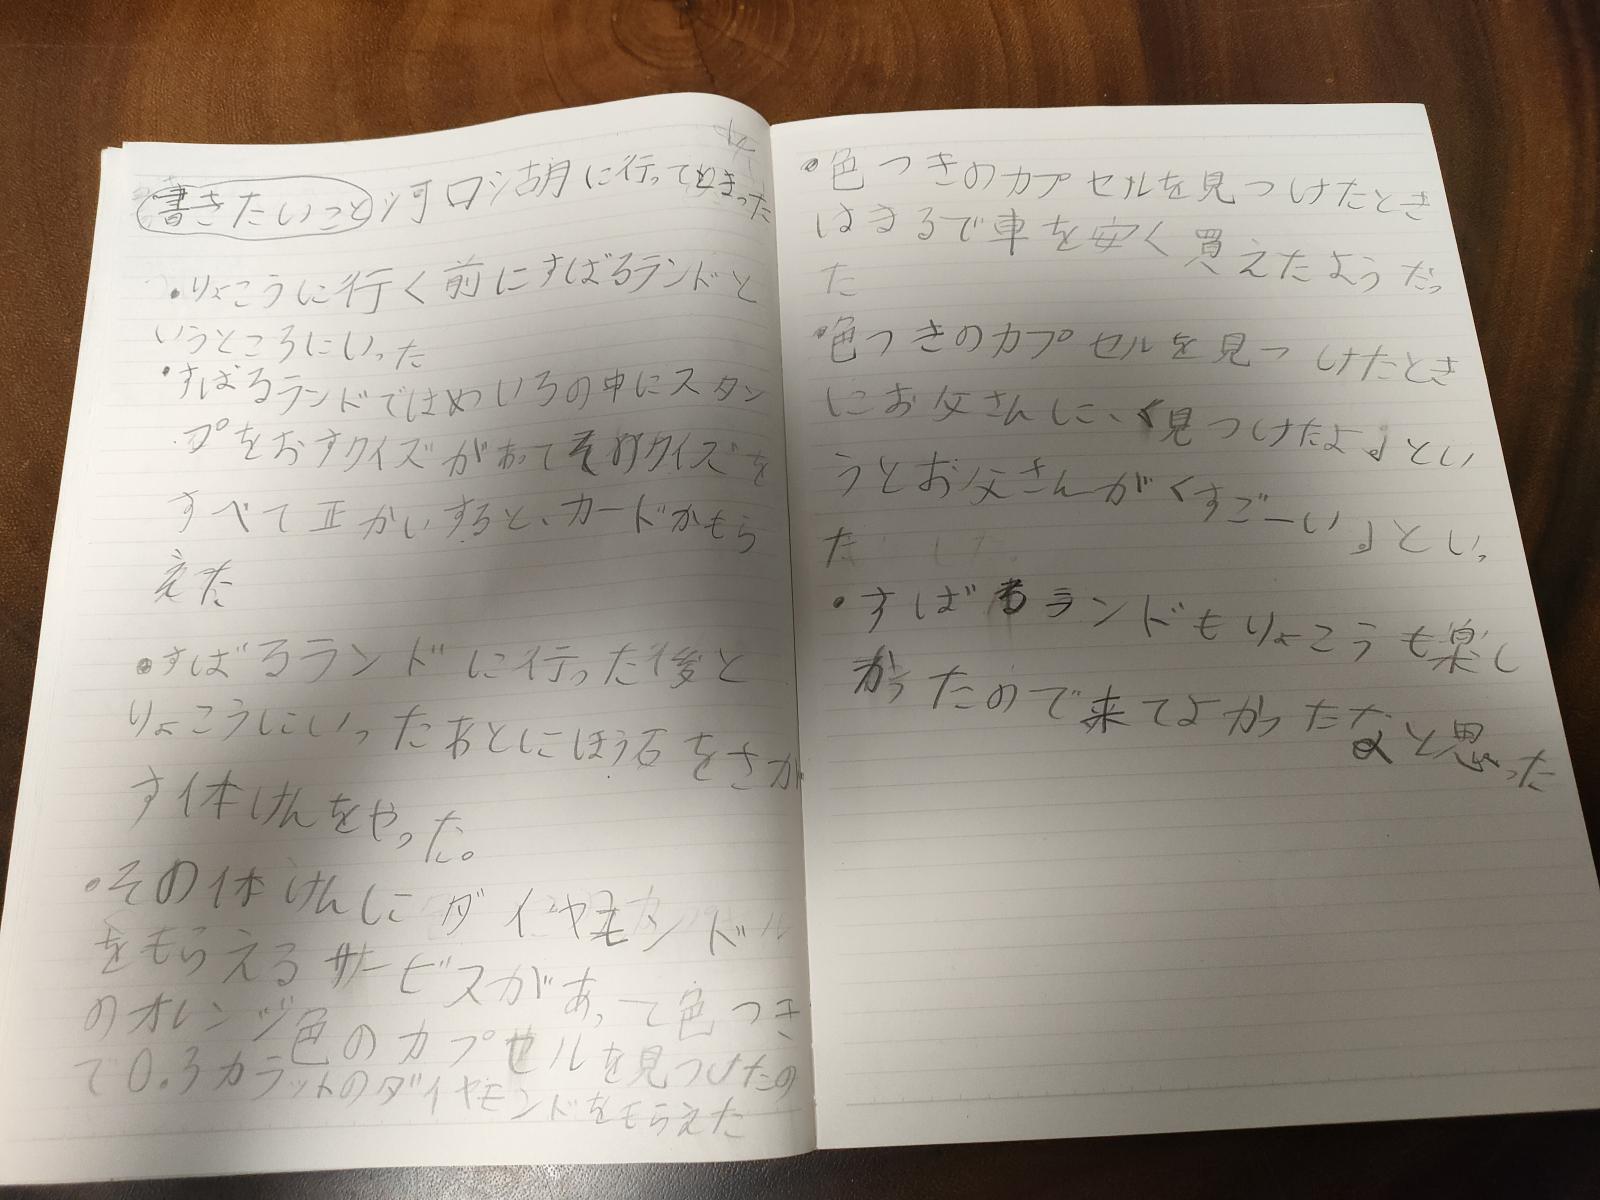 書きたいこと 河口湖に行ってとまった
・りょこうに行く前にすばるランドと
いうところにいった
・すばるランドではめいろの中にスタン
プをおすクイズがあってそのクイズを
すべて正かいすると、カードがもら
えた
・すばるランドに行った後と
りょこうにいったあとにほう石をさが
す体けんをやった。
・その体けんにダイヤモンド
をもらえるサービスがあって色つき
のオレンジ色のカプセルを見つけたの
で0.3カラットのダイヤモンドをもらえた
・色つきのカプセルを見つけたとき
はまるで車を安く買えたようだっ
た
・色つきのカプセルを見つけたとき
にお父さんに、「見つけたよ」とい
うとお父さんが「すごーい」といっ
た
・すばるランドもりょこうも楽し
かったので来てよかったなと思った